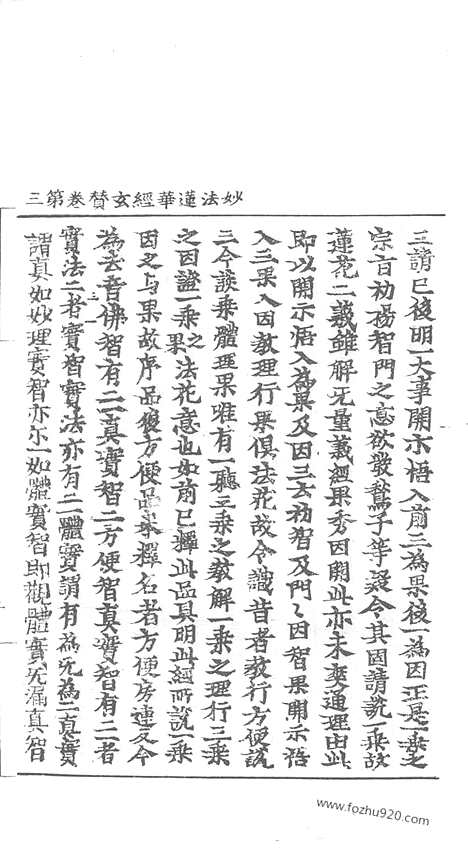 妙法蓮華經玄贊卷第三
三請已後明一大事開示悟入前三為果後一為因正是一乘之
宗旨初揚智門之意欲發鶖子等疑令其固請說一乘故
蓮花二義雖解无量義經果秀因開此亦未爽通理由此
即以開示悟入為果及因三云初智及門〻因智果開示悟
入三果入因教理行果俱法花故今識昔者教行方便說
三今談乘體理果唯有一聽三乘之教解一乘之理行三乘
之因證一乘之果法花意也如前已釋此品具明此經所說一乘
因之与果故序品後方便品來釋名者方便房連反今
為去音佛智有二一真實智二方便智真實智有二一者
實法二者實智實法亦有二體實謂有為无為二真實
謂真如妙理實智亦尒一如體實智即觀體實无漏真智
www.fozhu920.com